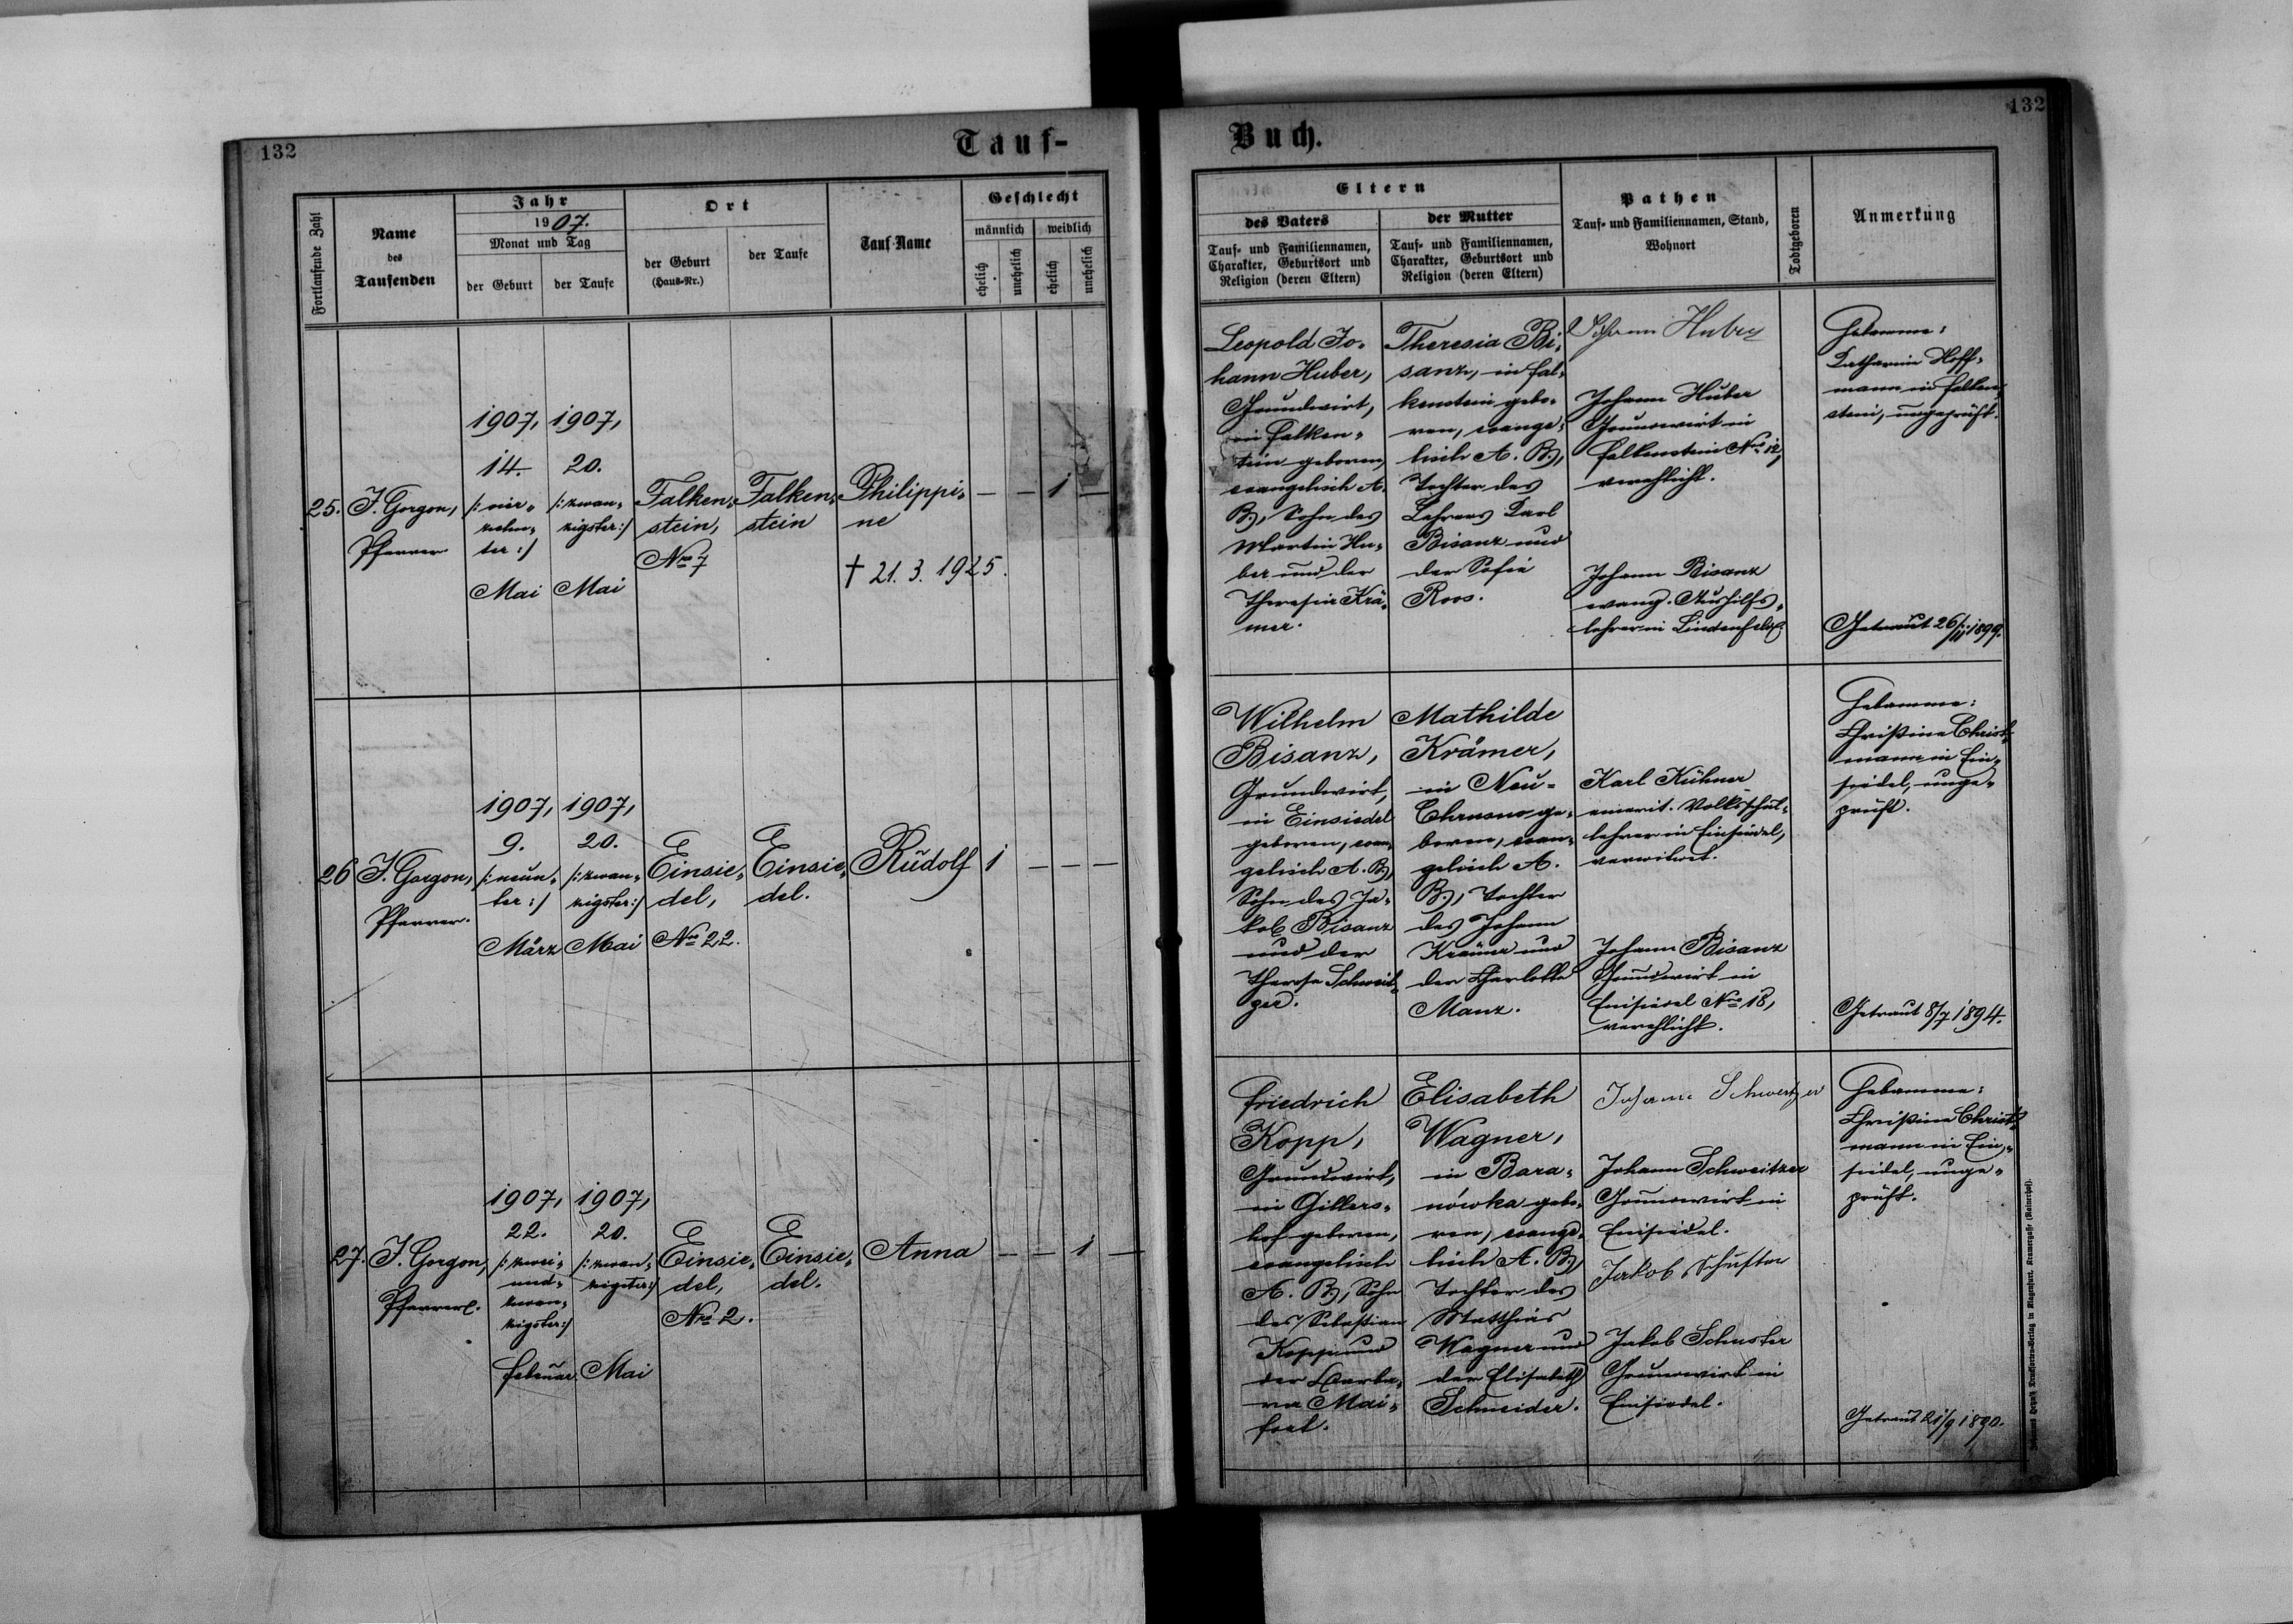 132
Tauf-
Fortlaufende Zahl
Name
des
Taufenden
Jahr
1907.
Monat und Tag
der Geburt
der Taufe
Ort
der Geburt
(Haus-Nr.)
der Taufe
Tauf-Name
Geschlecht
männlich
weiblich
ehelich
unehelich
ehelich
unehelich
25.
J. Gorgon,
Pfarrer
1907,
14.
/: vier-
zehn-
ter :/
Mai
1907,
20.
/: zwan-
zigster :/
Mai
Falken-
stein,
Nro 7
Falken-
stein
Philippi-
ne
† 21. 3. 1925.
— — 1 —
26
J. Gorgon,
Pfarrer.
1907,
9.
/: neun-
ter :/
März
1907,
20.
/: zwan-
zigster :/
Mai
Einsie-
del,
Nro 22.
Einsie-
del.
Rudolf
1 — — —
27.
J. Gorgon,
Pfarrer.
1907,
22.
/: zwei-
und-
zwan-
zigster :/
Februar
1907,
20.
/: zwan-
zigster :/
Mai
Einsie-
del,
Nro 2.
Einsie-
del.
Anna
— — 1 —
132
Buch.
Eltern
des Vaters
Tauf- und Familiennamen,
Charakter, Geburtsort und
Religion (deren Eltern)
der Mutter
Tauf- und Familiennamen,
Charakter, Geburtsort und
Religion (deren Eltern)
Pathen
Tauf- und Familiennamen, Stand,
Wohnort
Todtgeboren
Anmerkung
Leopold Jo-
hann Huber,
Grundwirt,
in Falken-
stein geboren,
evangelisch A.
B., Sohn des
Martin Hu-
ber und der
Theresia Krä-
mer.
Theresia Bi-
sanz, in Fal-
kenstein gebo-
ren, evange-
lisch A. B.,
Tochter des
Lehrers Karl
Bisanz und
der Sofie
Roos.
Johann Huber
Johann Huber
Grundwirt in
Falkenstein Nro 12,
verehlicht.
Johann Bisanz
evang. Aushilfs-
lehrer in Lindenfeld
Hebamme:
Katharina Hoff-
mann in Falken-
stein, ungeprüft.
Getraut 26/II 1899.
Wilhelm
Bisanz,
Grundwirt,
in Einsiedel
geboren, evan-
gelisch A. B.,
Sohn des Ja-
kob Bisanz
und der
Therese Schweit-
zer.
Mathilde
Krämer,
in Neu-
Chrusno ge-
boren, evan-
gelisch A.
B., Tochter
des Johann
Krämer und
der Charlotte
Manz.
Karl Kühner
emerit. Volksschul-
lehrer in Einsiedel,
verwitwet.
Johann Bisanz
Grundwirt in
Einsiedel Nro 18,
verehlicht.
Hebamme:
Christine Christ-
mann in Ein-
siedel, unge-
prüft.
Getraut 8/7 1894.
Friedrich
Kopp,
Grundwirt,
in Gillers-
hof geboren,
evangelisch
A. B., Sohn
des Sebastian
Kopp und
der Barba-
ra Mai-
Elisabeth
Wagner,
in Bara-
nówka gebo-
ren, evange-
lisch A. B.,
Tochter des
Matthias
Wagner und
der Elisabeth
Schneider.
Johann Schweitzer
Johann Schweitzer
Grundwirt in
Einsiedel.
Jakob Schuster
Jakob Schuster
Grundwirt in
Einsiedel.
Hebamme:
Christine Christ-
mann in Ein-
siedel, unge-
prüft.
Getraut 21/9 1890.